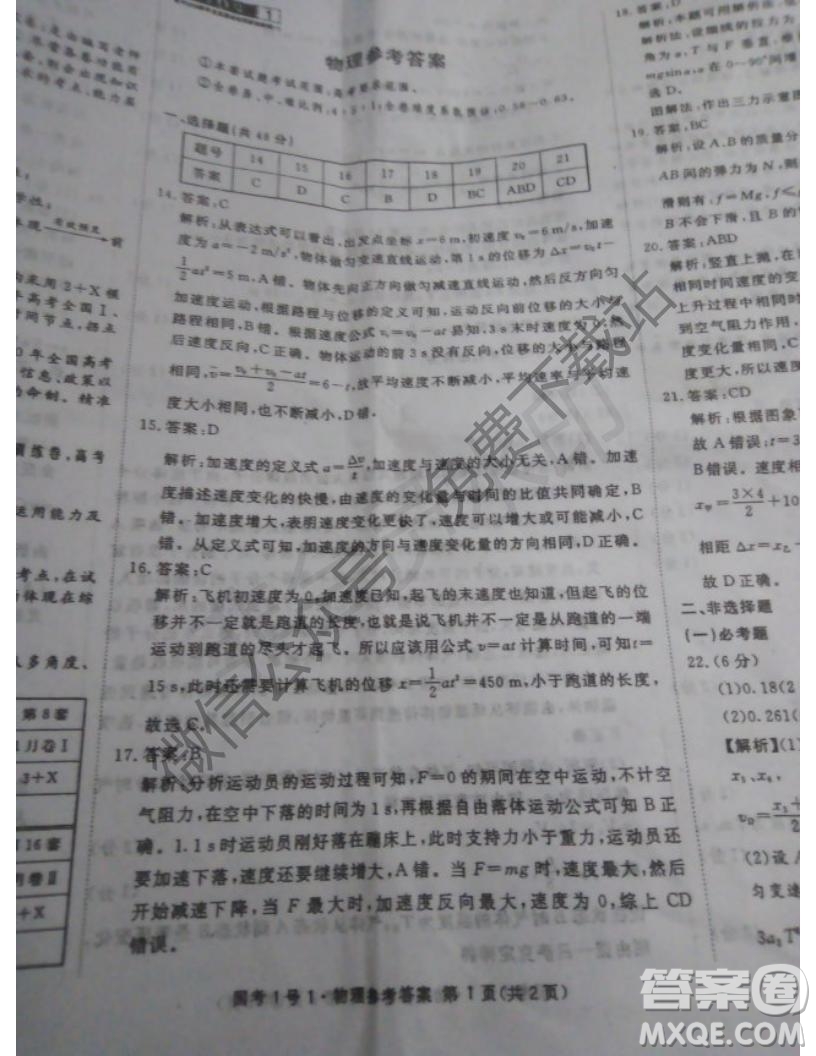 物理参考答案
①本套试题考试范围:高考要求范围。
②全卷易、中、难比例:4:5:1;全卷难度系数预估:0.58—0.63。
一、选择题(共48分)
题号 14 15 16 17 18 19 20 21
答案 C D C B D BC ABD CD
14. 答案:C
解析:从表达式可以看出,出发点坐标 x=6 m,初速度 v₀=6 m/s,加速
度为 a=-2 m/s²,物体做匀变速直线运动,第1 s的位移为 Δx=v₀t-
1/2at²=5 m,A错。物体先向正方向做匀减速直线运动,然后反方向匀
加速度运动,根据路程与位移的定义可知,运动反向前位移的大小与
路程相同,B错。根据速度公式 vₜ=v₀-at 易知,3 s末时速度为0;然
后速度反向,C正确。物体运动的前3 s没有反向,位移的大小与路程
相同,v=(v₀+v₀-at)/2=6-t,故平均速度不断减小,平均速率与平均速
度大小相同,也不断减小,D错。
15. 答案:D
解析:加速度的定义式 a=Δv/t,加速度与速度的大小无关,A错。加速
度描述速度变化的快慢,由速度的变化量与时间的比值共同确定,B
错。加速度增大,表明速度变化更快了,速度可能增大可能减小,C
错。从定义式可知,加速度的方向与速度变化量的方向相同,D正确。
16. 答案:C
解析:飞机初速度为0,加速度已知,起飞的末速度也知道,但起飞的位
移并不一定就是跑道的长度,也就是说飞机并不一定是从跑道的一端
运动到跑道的尽头才起飞。所以应该用公式 v=at 计算时间,可知t=
15 s,此时还需要计算飞机的位移 x=1/2at²=450 m,小于跑道的长度,
故选C。
17. 答案:B
解析:分析运动员的运动过程可知,F=0的期间在空中运动,不计空
气阻力,在空中下落的时间为1 s,再根据自由落体运动公式可知B正
确。1.1 s时运动员刚好落在蹦床上,此时支持力小于重力,运动员还
要加速下落,速度还要继续增大,A错。当 F=mg时,速度最大,然后
开始减速下降,当 F 最大时,加速度反向最大,速度为0,综上CD
错误。
国考1号1·物理参考答案 第1页(共2页)
18. 答案:D
解析:本题可用
解析:设细线的拉力为
角为 α,T 与 F 垂直,
mgsinα,α 在 0~90°间增
选D。
图解法:作出三力示意图
19. 答案:BC
解析:设A、B的质量分
AB间的弹力为N,则
滑则有:f=Mg,f≤
B不会下滑,且
20. 答案:ABD
解析:竖直上抛,在
相同时间速度的变
上升过程中
到空气阻力作用,
度变化量大
度更大,所以
21. 答案:CD
解析:根据图象
故A错误;t=3
B错误。速度相
3×4/2+10
相距 Δx=
故D正确。
二、非选择题
(一)必考题
22.(6分)
(1)0.18(2
(2)0.261(
【解析】(1)
x₃、x₄,
(2)设A
匀变速
3a₁T
微信公众号 免费下载站
答案圈
MXQE.COM
有效预见
采用2+X模
年高考全国Ⅰ、
时间节点,拐点
0年全国高考
信息,政策以
的命制。精准
预练卷,高考
运用能力及
考点,在试
体现在综
人多角度、
第8套
1月卷Ⅰ
3+X
16套
卷Ⅱ
+X